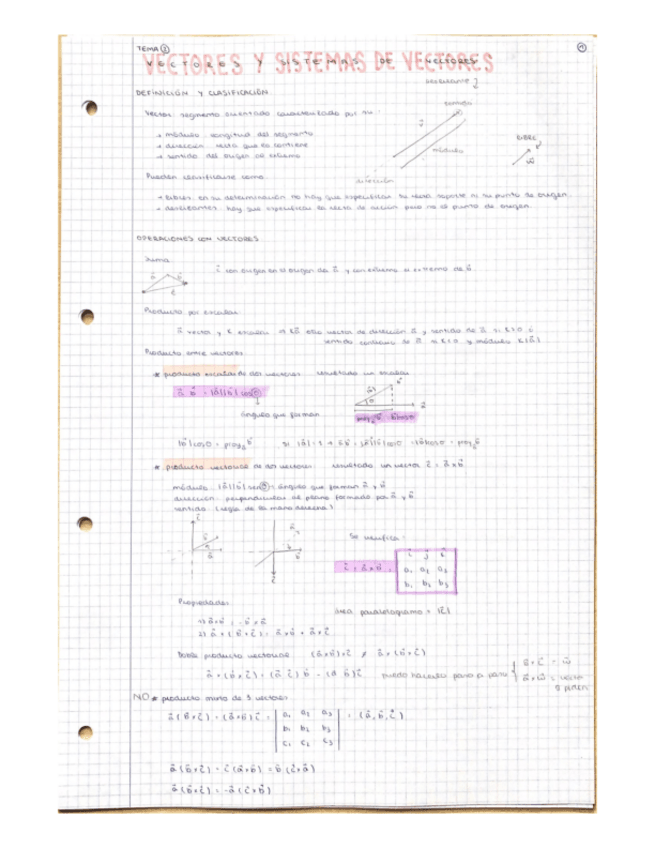 TEMA 2
VECTORES Y SISTEMAS DE VECTORES
DEFINICIÓN Y CLASIFICACIÓN
deslizante
Vector: segmento orientado caracterizado por su:
módulo: longitud del segmento
dirección: recta que lo contiene
sentido: del origen al extremo
módulo
dirección
LIBRE
Pueden clasificarse como:
libres: en su determinación no hay que especificar su recta soporte ni su punto de origen.
deslizantes: hay que especificar la recta de acción pero no el punto de origen.
OPERACIONES CON VECTORES
Suma
c⃗ con origen en el origen de a⃗ y con extremo el extremo de b⃗.
Producto por escalar
sentido contrario de a⃗ si k<0 y módulo k|a⃗|
Producto entre vectores
* producto escalar de dos vectores: resultado un escalar
a⃗ b⃗ = |a⃗||b⃗| cos θ
ángulo que forman
|b⃗| cos θ = proy
* producto vectorial de dos vectores: resultado un vector c⃗ = a⃗ x b⃗
módulo: |a⃗||b⃗| sen θ = ángulo que forman a⃗ y b⃗
dirección: perpendicular al plano formado por a⃗ y b⃗
sentido: (regla de la mano derecha)
Se verifica:
c⃗ = a⃗ x b⃗ =
a₁ a₂ a₃
b₁ b₂ b₃
Propiedades
área paralelogramo = |c⃗|
1) a⃗ x b⃗ = - b⃗ x a⃗
2) a⃗ x (b⃗ + c⃗) = a⃗ x b⃗ + a⃗ x c⃗
Doble producto vectorial (a⃗ x b⃗) x c⃗ ≠ a⃗ x (b⃗ x c⃗)
a⃗ x (b⃗ x c⃗) = (a⃗ c⃗) b⃗ - (a⃗ b⃗) c⃗ puedo hacerlo paso a paso
NO * producto mixto de 3 vectores
a⃗ (b⃗ x c⃗) = (a⃗ x b⃗) c⃗ = a₁ a₂ a₃ = (a⃗, b⃗, c⃗)
b₁ b₂ b₃
c₁ c₂ c₃
a⃗ (b⃗ x c⃗) = c⃗ (a⃗ x b⃗) = b⃗ (c⃗ x a⃗)
a⃗ (b⃗ x c⃗) = -a⃗ (c⃗ x b⃗)